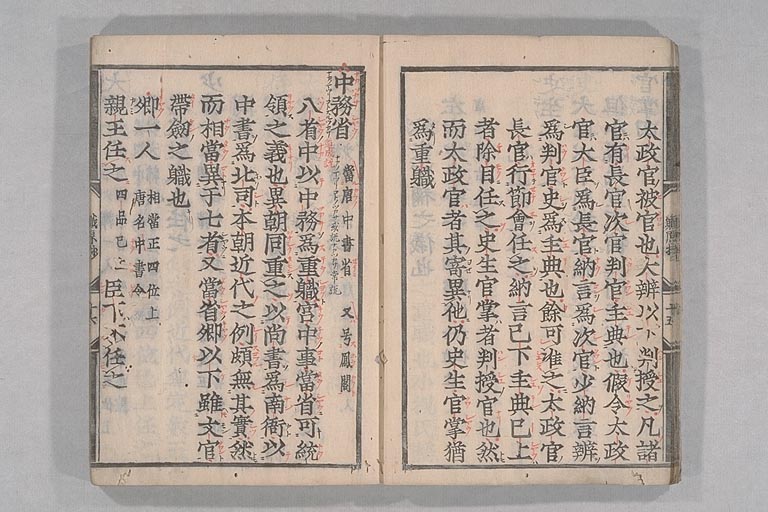 太政官被官也大辨以下判授之凡諸
官有長官次官判官主典也假令太政
官大臣爲長官納言爲次官少納言辨
爲判官史爲主典也餘可准之太政官
長官行節會任之納言已下主典已上
者除目任之史生官掌者判授官也然
而太政官者其寄異他仍史生官掌猶
爲重軄
中務省 當唐中書省 又号鳳閣
八省中以中務爲重軄宮中事當省可統
領之義也異朝同重之以尚書爲南衙以
中書爲北司本朝近代之例頗無其實然
而相當異于七省又當省卿以下雖文官
帶劔之軄也
卿一人 相當正四位上 唐名中書令
親王任之 四品已上 臣下不任之